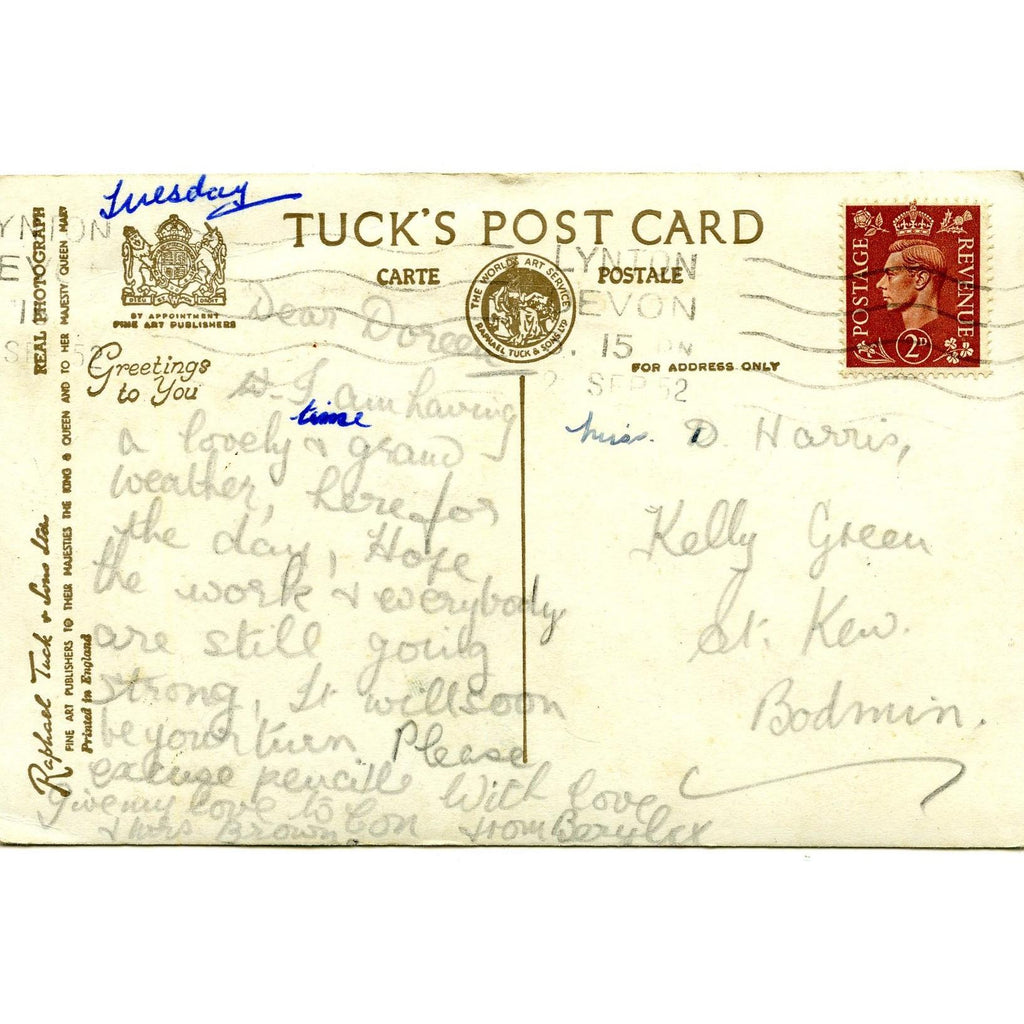 Tuesday
TUCK'S POST CARD
CARTE POSTALE
THE WORLD'S ART SERVICE
RAPHAEL TUCK & SONS LTD
BY APPOINTMENT
FINE ART PUBLISHERS
Greetings
to You
REAL PHOTOGRAPH
Raphael Tuck & Sons Ltd
FINE ART PUBLISHERS TO THEIR MAJESTIES THE KING & QUEEN AND TO HER MAJESTY QUEEN MARY
Printed in England
Dear Doreen
I am having
time
a lovely & grand
weather, here for
the day, Hope
the work & everybody
are still going
strong, It will soon
be your turn Please
excuse pencill With love
Give my love to Con from Beryl xx
& Mrs Brown
LYNTON
DEVON
15
SEP 52
POSTAGE
REVENUE
2D
FOR ADDRESS ONLY
Miss. D. Harris,
Kelly Green
St. Kew.
Bodmin.
YNTON
SEP 52